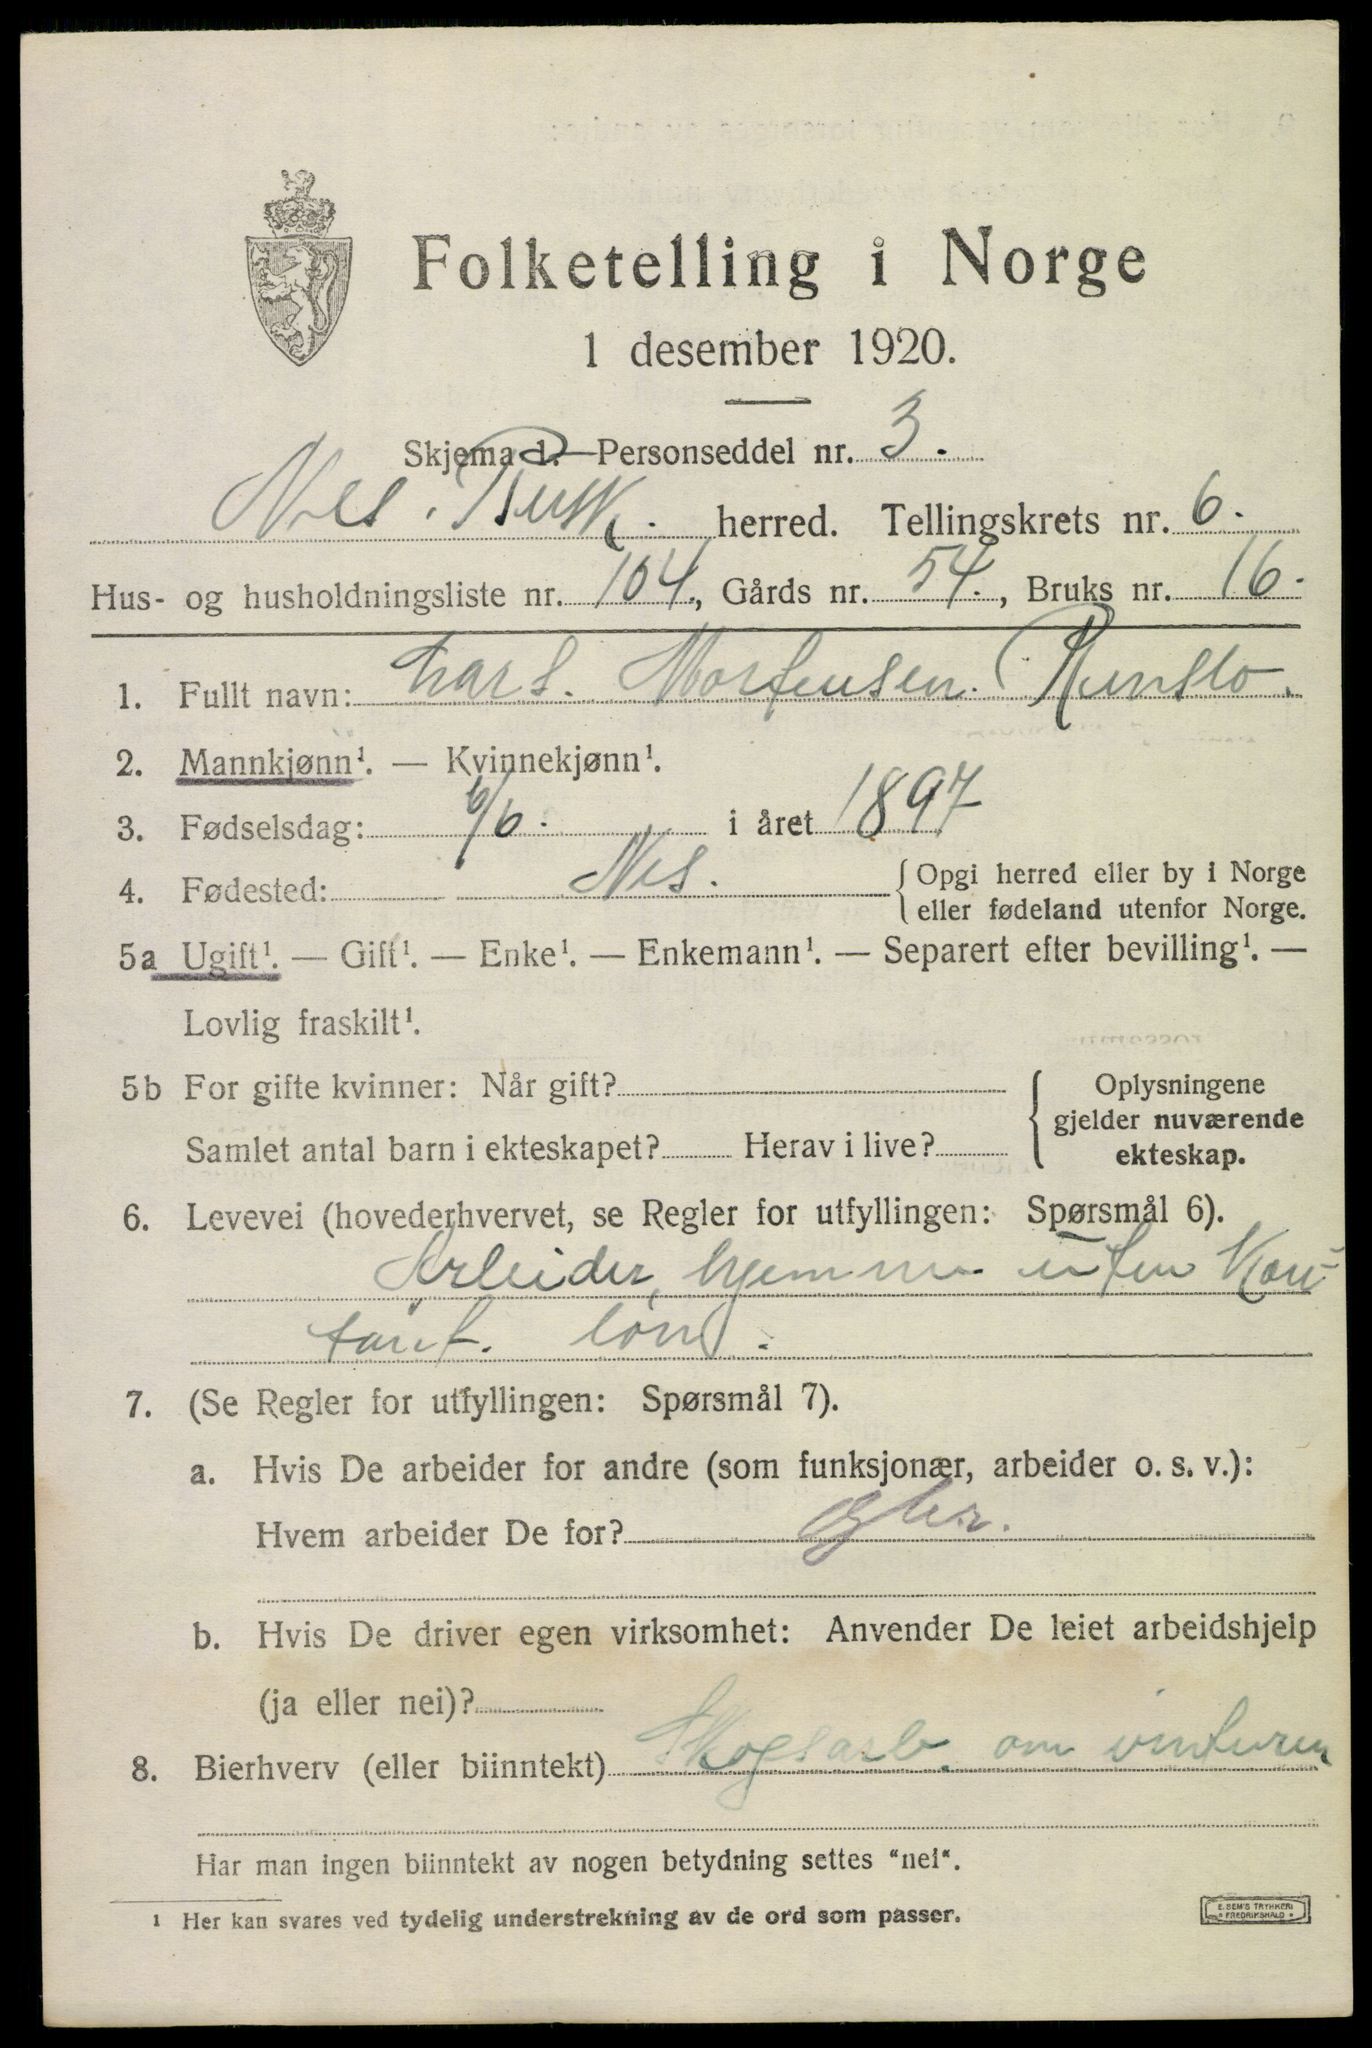 Folketelling i Norge
1 desember 1920.
Skjema d. Personseddel nr. 3.
Nes. Busk. herred. Tellingskrets nr. 6.
Hus- og husholdningsliste nr. 104., Gårds nr. 54., Bruks nr. 16.
1. Fullt navn: Lars. Mortensen. Runslo.
2. Mannkjønn¹. — Kvinnekjønn¹.
3. Fødselsdag: 6/6. i året 1897
4. Fødested: Nes. { Opgi herred eller by i Norge
eller fødeland utenfor Norge.
5a Ugift¹. — Gift¹. — Enke¹. — Enkemann¹. — Separert efter bevilling¹. —
Lovlig fraskilt¹.
5b For gifte kvinner: Når gift? { Oplysningene
gjelder nuværende
Samlet antal barn i ekteskapet? Herav i live?
ekteskap.
6. Levevei (hovederhvervet, se Regler for utfyllingen: Spørsmål 6).
Arbeider, hjemme uten Kon-
tant. lønn.
7. (Se Regler for utfyllingen: Spørsmål 7).
a. Hvis De arbeider for andre (som funksjonær, arbeider o. s. v.):
Hvem arbeider De for?
b. Hvis De driver egen virksomhet: Anvender De leiet arbeidshjelp
(ja eller nei)?
8. Bierhverv (eller biinntekt) Skogsarb. om vinteren
Har man ingen biinntekt av nogen betydning settes "nei".
¹ Her kan svares ved tydelig understrekning av de ord som passer.
E. SEM'S TRYKKERI
FREDRIKSHALD